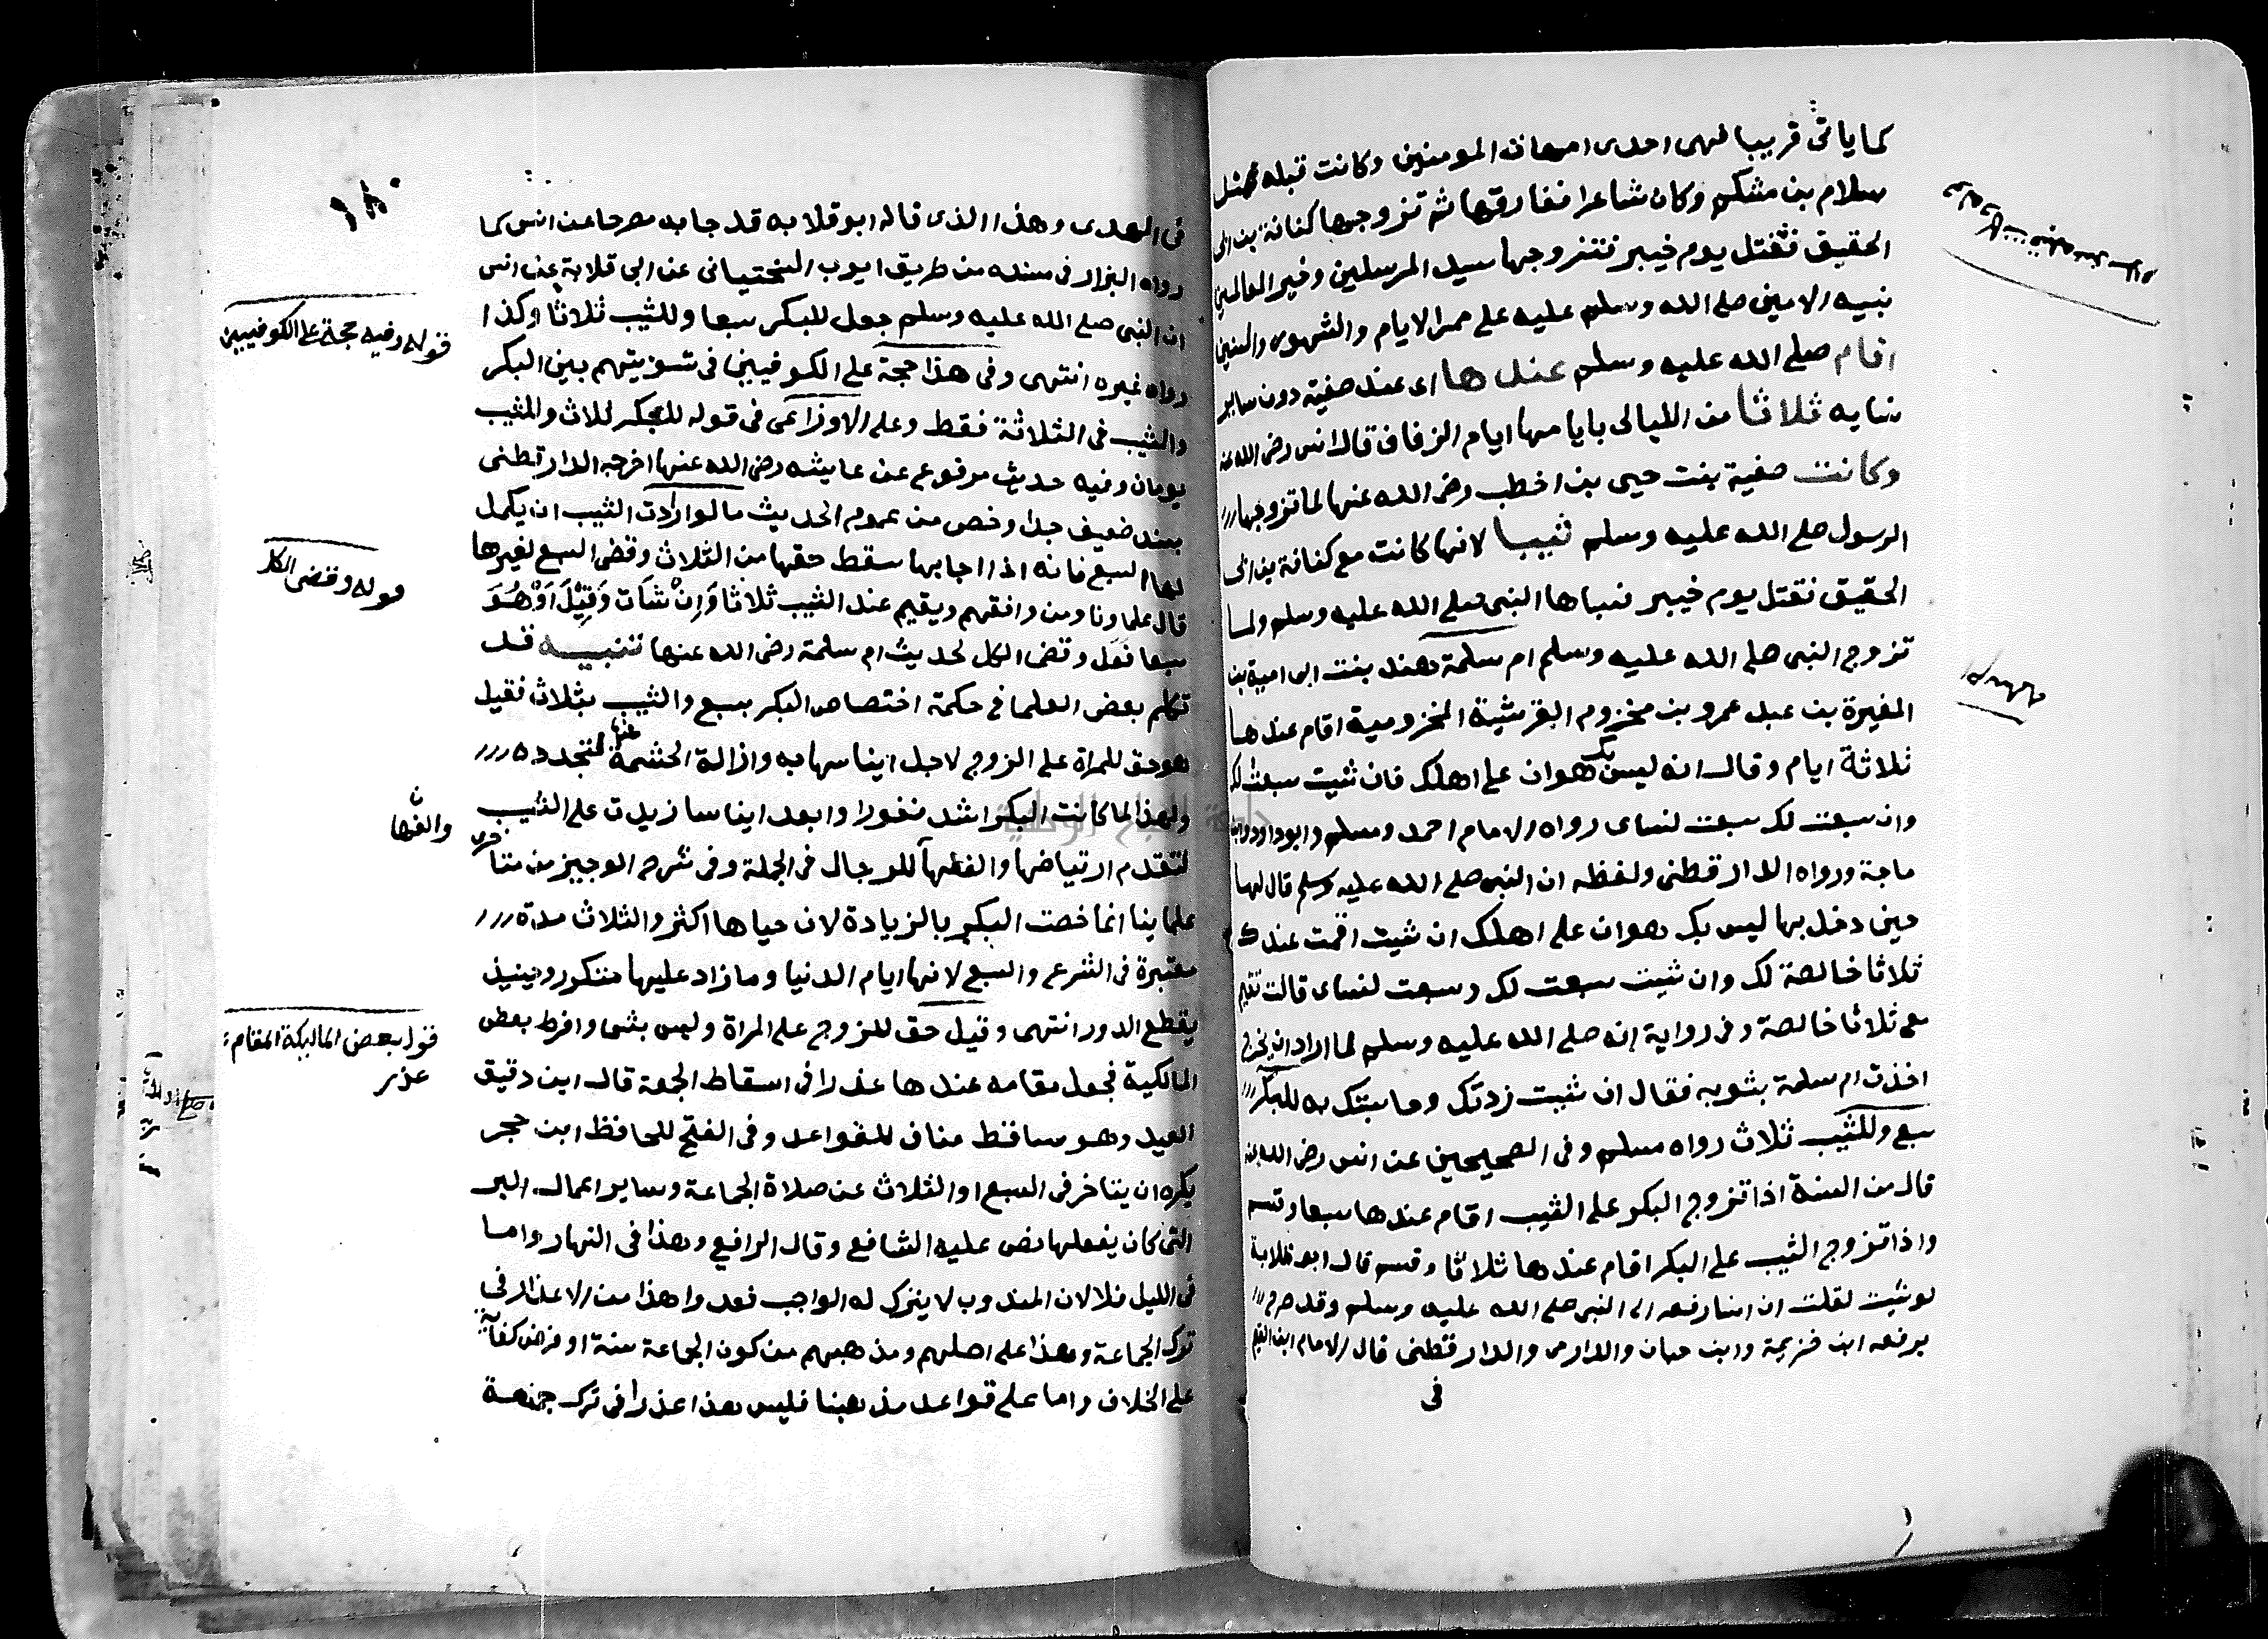 كما ياتى قريبا فهى احدى امهات المومنين وكانت قبله تحت
سلام بن مشكم وكان شاعرا ففارقها ثم تزوجها كنانة بن ابى
الحقيق فقتل يوم خيبر فتزوجها سيد المرسلين وخير العالمين
نبيه الامين صلى الله وسلم عليه على ممر الايام والشهور والسنين
اقام صلى الله عليه وسلم عندها اى عند صفية دون ساير
نسايه ثلاثا من الليالى بايامها ايام الزفاف قال انس رضى الله عنه
وكانت صفية بنت حيى بن اخطب رضى الله عنها لما تزوجها
الرسول صلى الله عليه وسلم ثيبا لانها كانت مع كنانة بن ابى
الحقيق فقتل يوم خيبر فسباها النبى صلى الله عليه وسلم ولما
تزوج النبى صلى الله عليه وسلم ام سلمة هند بنت ابى امية بن
المغيرة بن عبد عمرو بن مخزوم القرشية المخزومية اقام عندها
ثلاثة ايام وقال انه ليس بك هوان على اهلك فان شيت سبعت لك
وان سبعت لك سبعت لنساى رواه الامام احمد ومسلم وابو داود وابن
ماجة ورواه الدارقطنى ولفظه ان النبى صلى الله عليه وسلم قال لها
حين دخل بها ليس بك هوان على اهلك ان شيت اقمت عندك
ثلاثا خالصة لك وان شيت سبعت لك وسبعت لنساى قالت تقيم
معى ثلاثا خالصة وفى رواية انه صلى الله عليه وسلم لما اراد ان يخرج
اخذت ام سلمة بثوبه فقال ان شيت زدتك وحاسبتك به للبكر
سبع وللثيب ثلاث رواه مسلم وفى الصحيحين عن انس رضى الله عنه
قال من السنة اذا تزوج البكر على الثيب اقام عندها سبعا وقسم
واذا تزوج الثيب على البكر اقام عندها ثلاثا وقسم قال ابو قلابة
لو شيت لقلت ان انسا رفعه الى النبى صلى الله عليه وسلم وقد صرح
برفعه ابن خزيمة وابن حبان والدارمى والدارقطنى قال الامام ابن القيم
فى
١٨٠
فى الهدى وهذا الذى قاله ابو قلابه قد جا به مصرحا عن انس كما
رواه البزار فى مسنده من طريق ايوب السختيانى عن ابى قلابة عن انس
ان النبى صلى الله عليه وسلم جعل للبكر سبعا وللثيب ثلاثا وكذا
رواه غيره انتهى وفى هذا حجة على الكوفيين فى تسويتهم بين البكر
والثيب فى الثلاثة فقط وعلى الاوزاعى فى قوله للبكر ثلاث والثيب
يومان وفيه حديث مرفوع عن عايشه رضى الله عنها اخرجه الدارقطنى
بسند ضعيف جدا وخص من عموم الحديث ما لو ارادت الثيب ان يكمل
لها السبع فانه اذا اجابها سقط حقها من الثلاث وقضى السبع لغيرها
قال علماونا ومن وافقهم ويقيم عند الثيب ثلاثا وَإِنْ شَات وَقِيْلَ اَوْ هُوَ
سبعا فعل وقضى الكل لحديث ام سلمة رضى الله عنها تنبيه قد
تكلم بعض العلما فى حكمة اختصاص البكر بسبع والثيب بثلاث فقيل
هو حق للمراة على الزوج لاجل ايناسها به وازالة الحشمة عنها لتجدده
ولهذا لما كانت البكر اشد نفورا وابعد ايناسا زيدت على الثيب
لتقدم ارتياضها والفها للرجال فى الجملة وفى شرح الوجيز من متاخرى
علماينا انما خصت البكر بالزيادة لان حياها اكثر والثلاث مدة
معتبرة فى الشرع والسبع لانها ايام الدنيا وما زاد عليها متكرر وحينيذ
يقطع الدور انتهى وقيل حق للزوج على المراة وليس بشى وافرط بعض
المالكية فجعل مقامه عندها عذرا فى اسقاط الجمعة قال ابن دقيق
العيد وهو ساقط مناف للقواعد وفى الفتح للحافظ ابن حجر
يكره ان يتاخر فى السبع او الثلاث عن صلاة الجماعة وساير اعمال البر
التى كان يفعلها نص عليه الشافعى وقال الرافعى وهذا فى النهار واما
فى الليل فلا لان المندوب لا يترك له الواجب فعدوا هذا من الاعذار فى
ترك الجماعة وهذا على اصلهم ومذهبهم من كون الجماعة سنة او فرض كفاية
على الخلاف واما على قواعد مذهبنا فليس هذا عذرا فى ترك جمعة
قوله وفيه حجة على الكوفيين
قوله وقضى الكل
والفها
قول بعض المالكية المقام
عذر